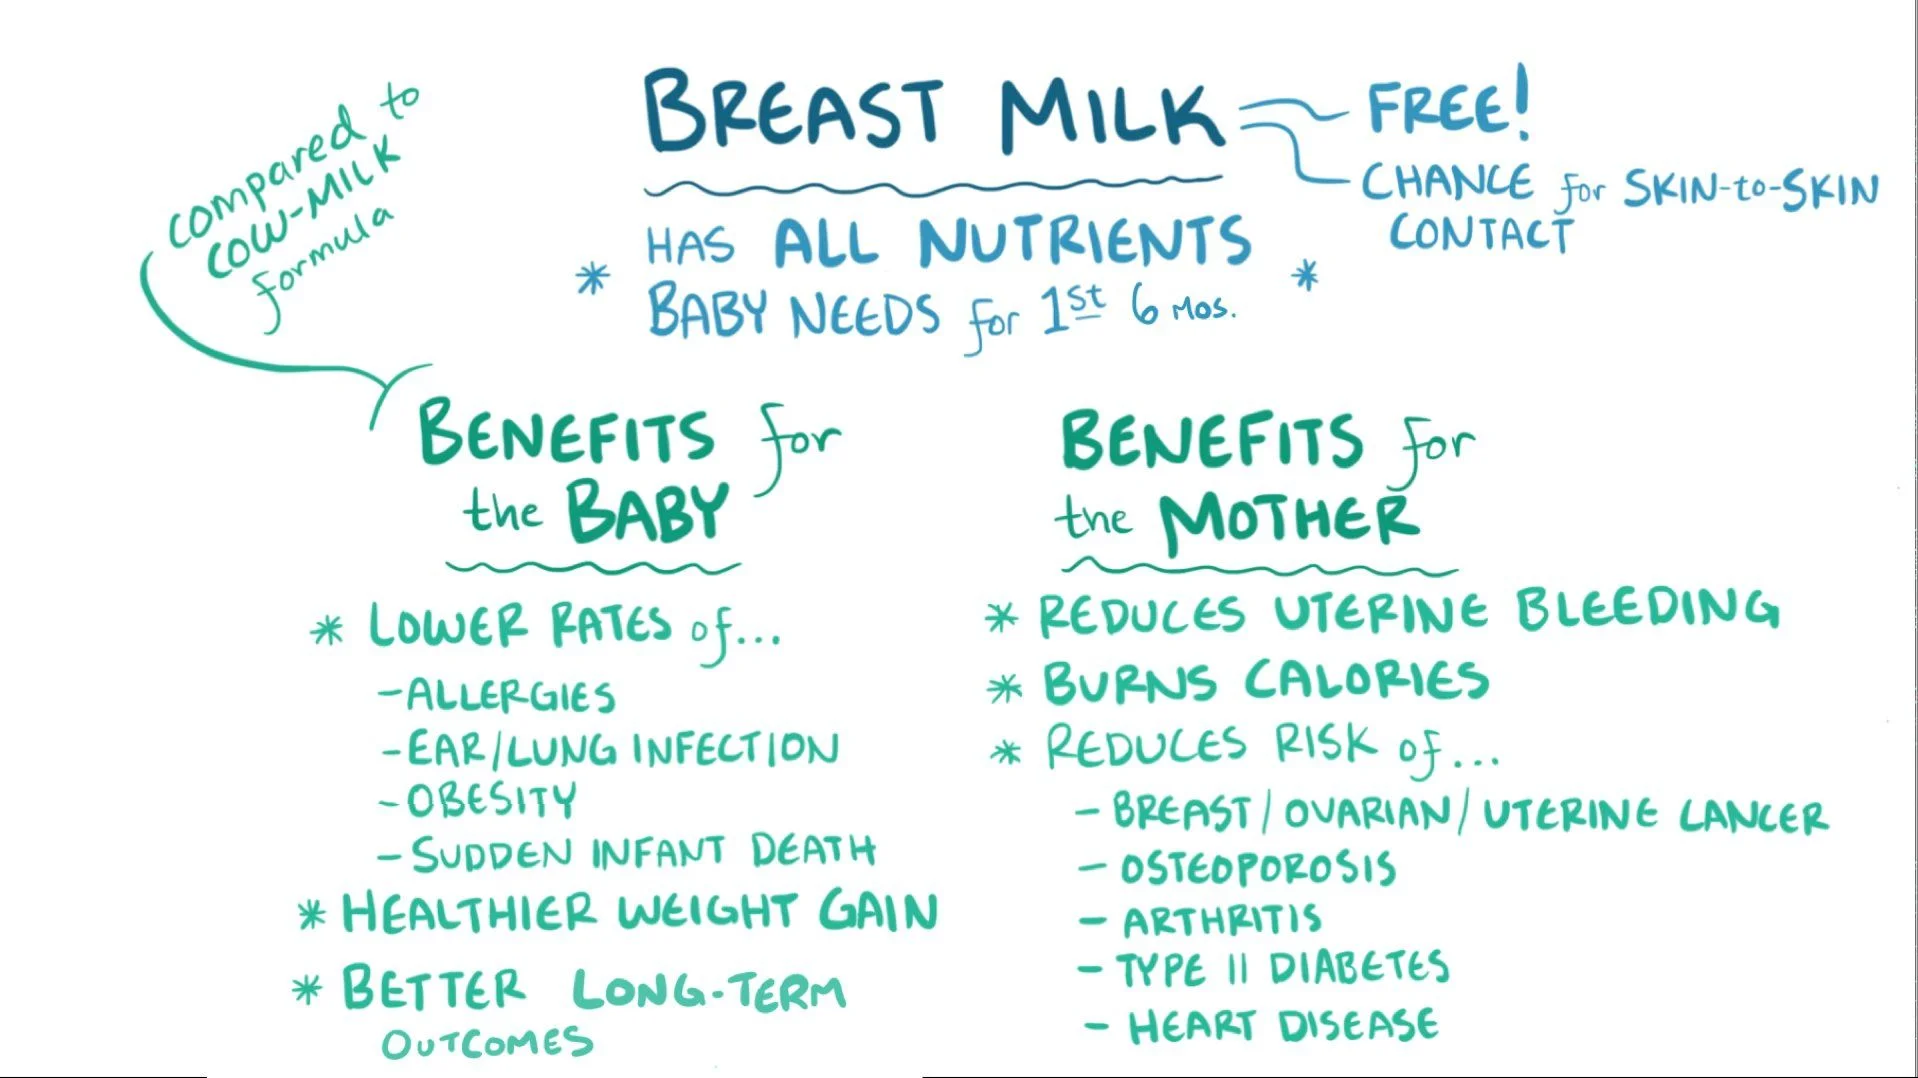 compared to
COW-MILK
formula
BREAST MILK
FREE!
CHANCE for SKIN-to-SKIN
CONTACT
* HAS ALL NUTRIENTS *
BABY NEEDS for 1st 6 MOS.
BENEFITS for
the BABY
* LOWER RATES of...
- ALLERGIES
- EAR/LUNG INFECTION
- OBESITY
- SUDDEN INFANT DEATH
* HEALTHIER WEIGHT GAIN
* BETTER LONG-TERM
OUTCOMES
BENEFITS for
the MOTHER
* REDUCES UTERINE BLEEDING
* BURNS CALORIES
* REDUCES RISK of...
- BREAST/OVARIAN/UTERINE CANCER
- OSTEOPOROSIS
- ARTHRITIS
- TYPE II DIABETES
- HEART DISEASE